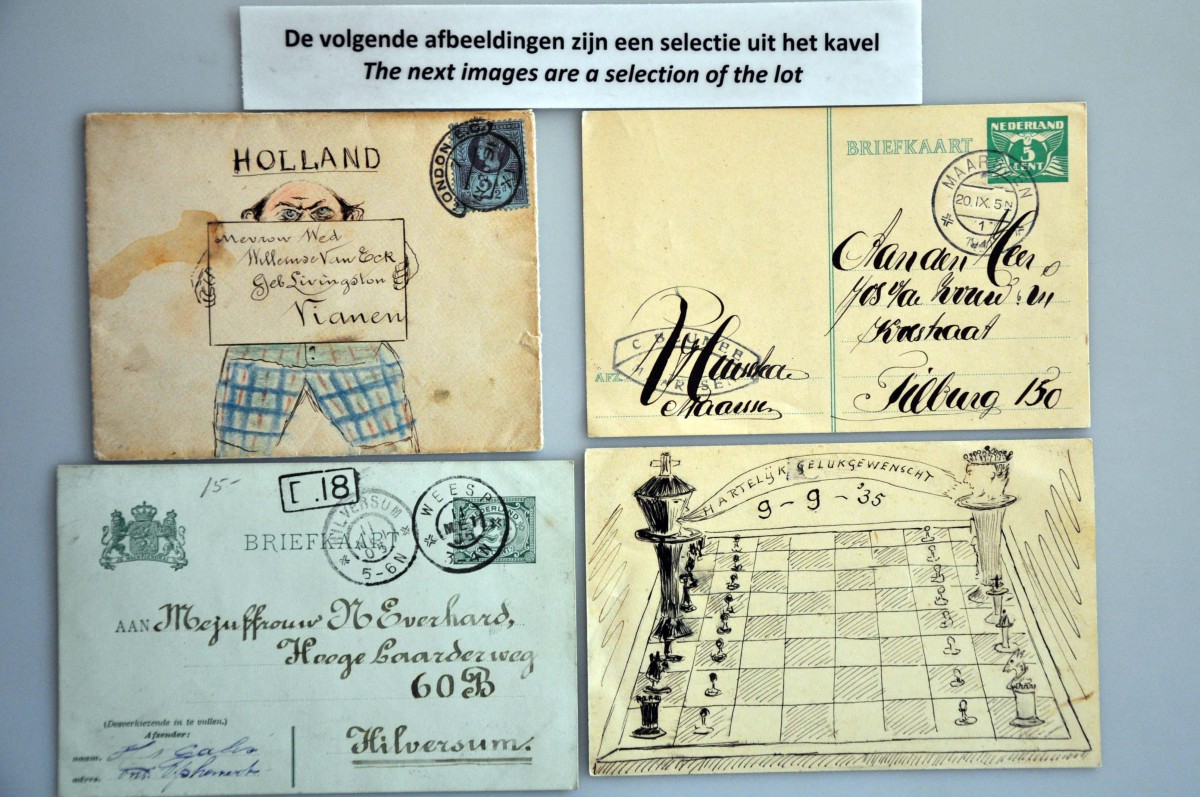 De volgende afbeeldingen zijn een selectie uit het kavel
The next images are a selection of the lot
HOLLAND
LONDON. E.C.
Mevrow Wed
Willemse Van Eck
Geb Livingston
Vianen
BRIEFKAART
NEDERLAND
5
CENT
20.IX.5
Aan den Heer
Jos v/d
Tilburg 150
AFZ.
15-
18
HILVERSUM
5-6N
WEESP
BRIEFKAART
AAN Mejuffrouw N Everhard,
Hooge Laarderweg
60B
Hilversum.
(Desverkiezende in te vullen.)
Afzender:
naam.
adres.
HARTELIJK GELUKGEWENSCHT
9-9-'35